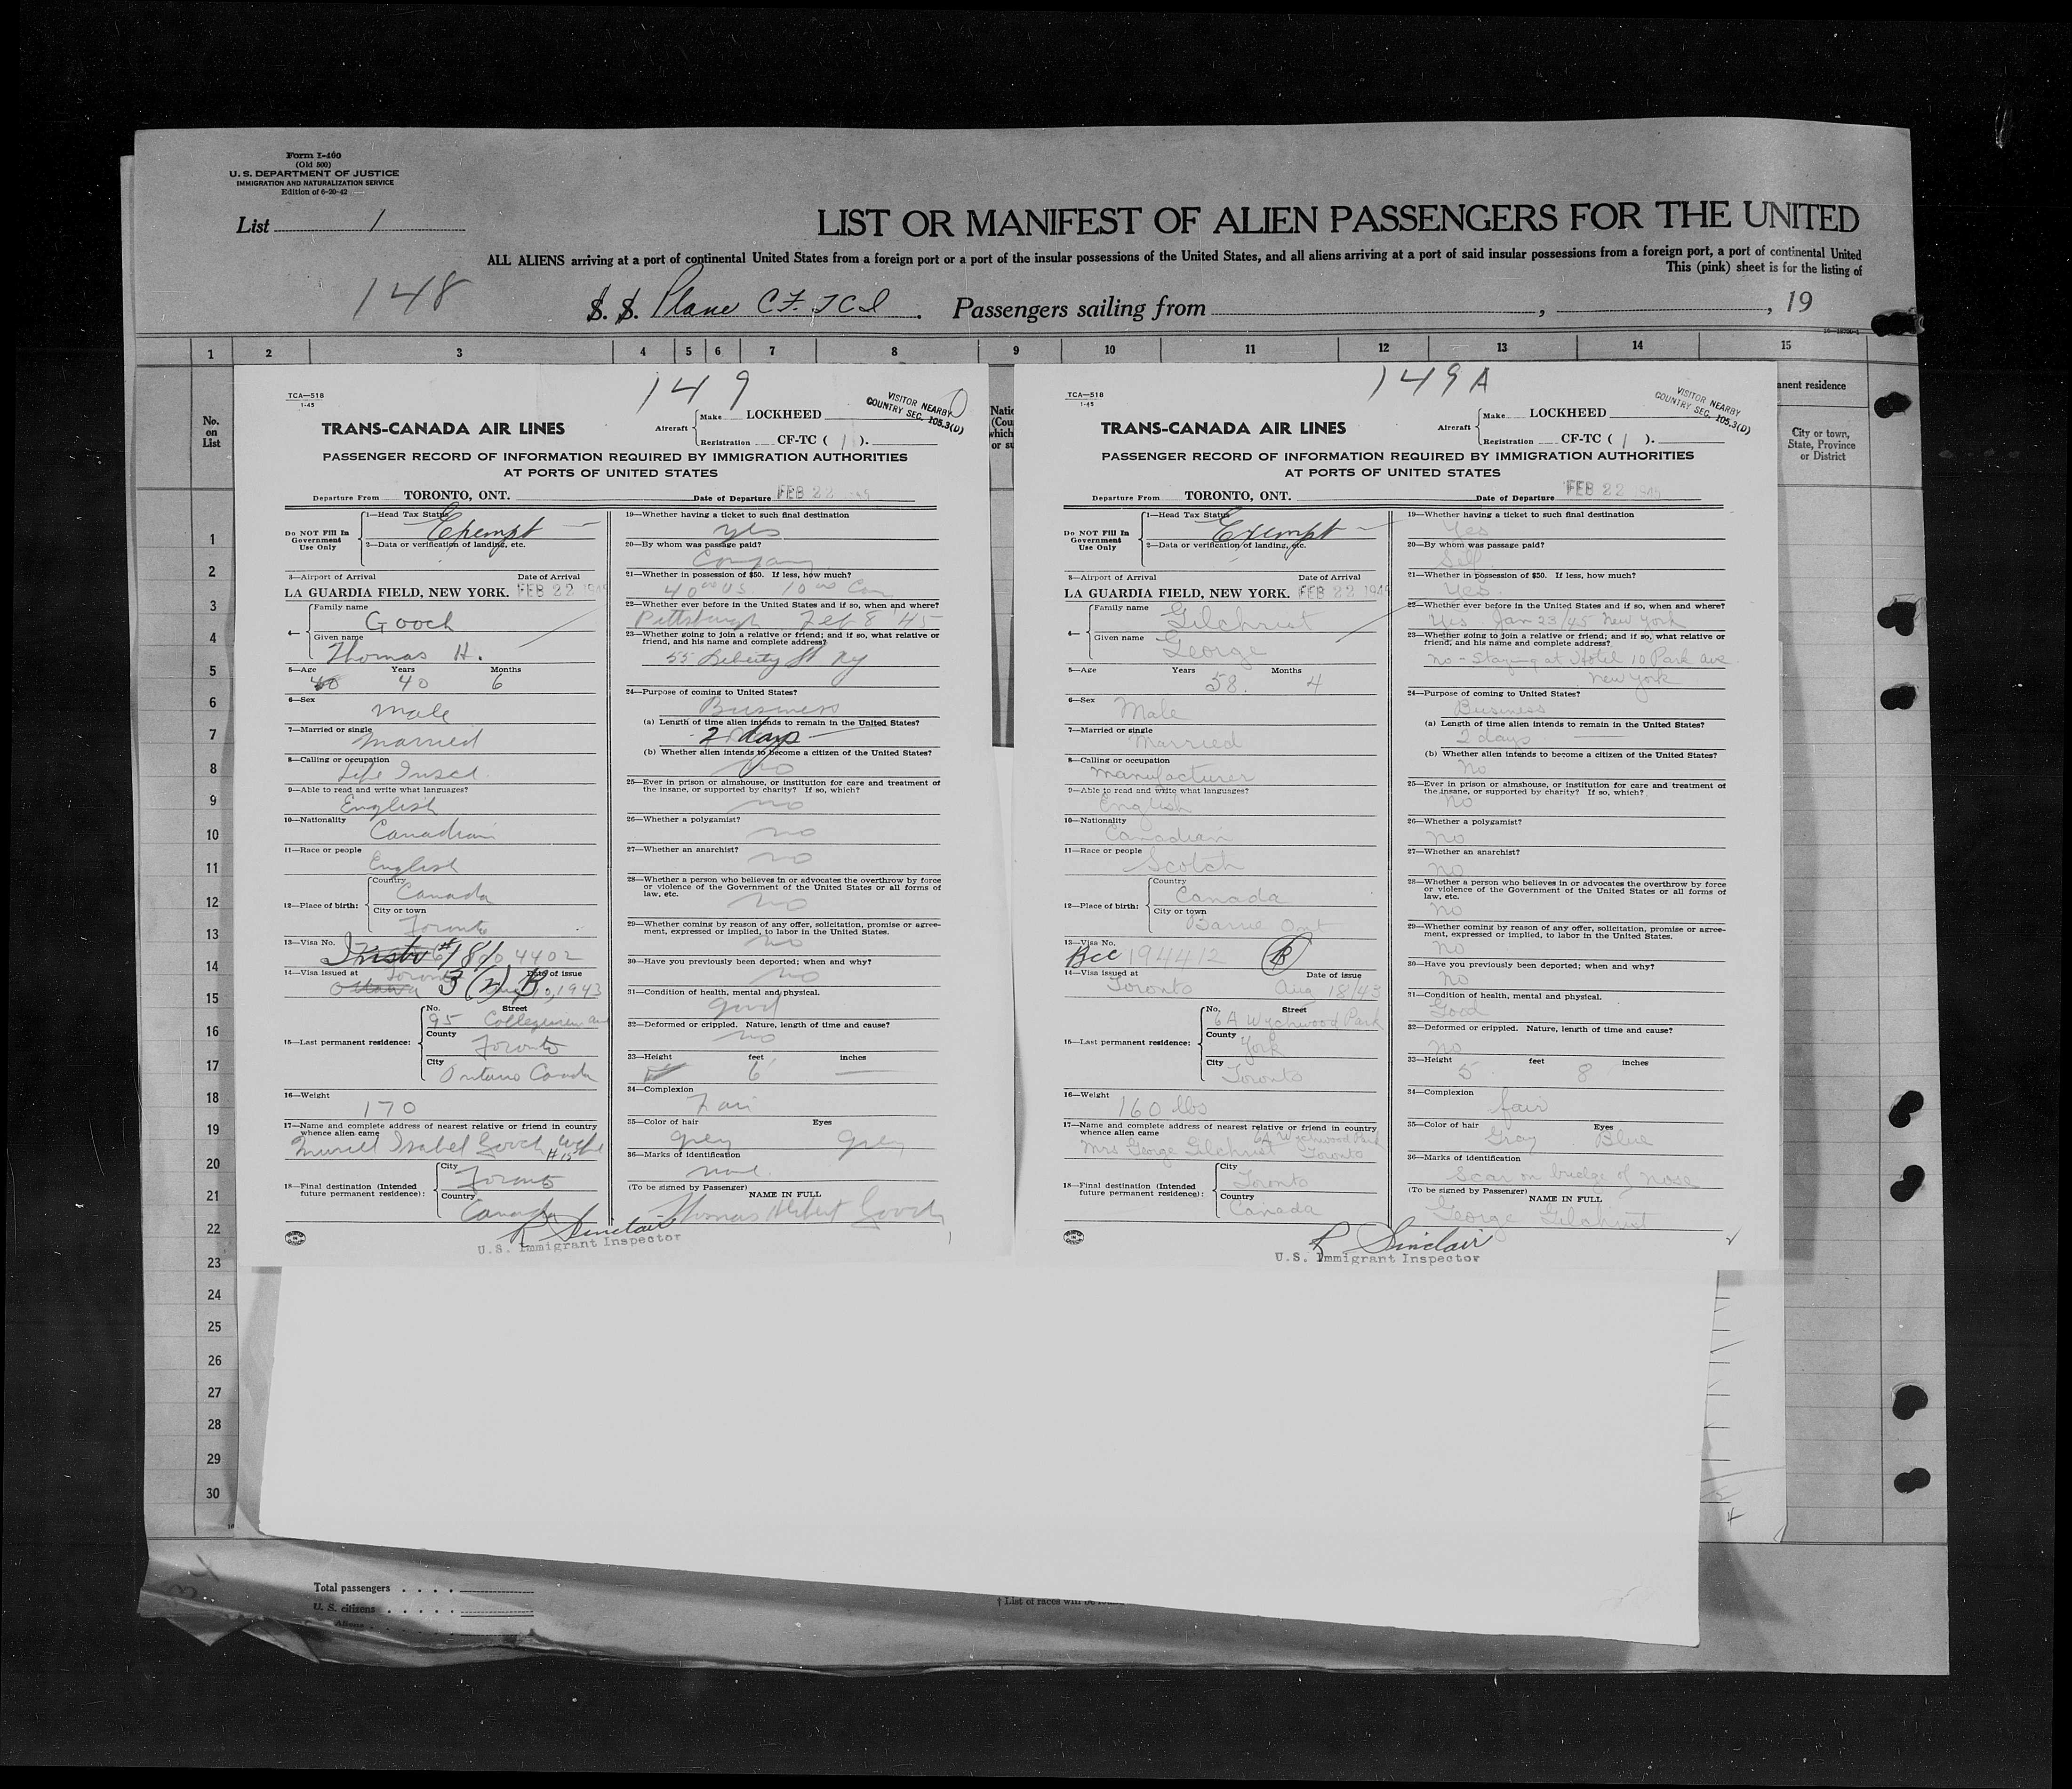 Form I-460
(Old 500)
U. S. DEPARTMENT OF JUSTICE
IMMIGRATION AND NATURALIZATION SERVICE
Edition of 6-20-42
List 1
LIST OR MANIFEST OF ALIEN PASSENGERS FOR THE UNITED
ALL ALIENS arriving at a port of continental United States from a foreign port or a port of the insular possessions of the United States, and all aliens arriving at a port of said insular possessions from a foreign port, a port of continental United
This (pink) sheet is for the listing of
148
S. S. Plane CF. TCI. Passengers sailing from , , 19
1 2 3 4 5 6 7 8 9 10 11 12 13 14 15
No. on List
anent residence
City or town, State, Province or District
149
TCA—518
1-45
VISITOR NEARBY
COUNTRY SEC. 105.3(D)
TRANS-CANADA AIR LINES
Aircraft Make LOCKHEED
Registration CF-TC ( 1 ).
PASSENGER RECORD OF INFORMATION REQUIRED BY IMMIGRATION AUTHORITIES
AT PORTS OF UNITED STATES
Departure From TORONTO, ONT. Date of Departure FEB 22 1945
Do NOT Fill In Government Use Only
1—Head Tax Status Exempt
2—Data or verification of landing, etc.
3—Airport of Arrival Date of Arrival
LA GUARDIA FIELD, NEW YORK. FEB 22 1945
4— Family name Gooch
Given name Thomas H.
5—Age Years Months
40 40 6
6—Sex Male
7—Married or single Married
8—Calling or occupation Life
9—Able to read and write what languages? English
10—Nationality Canadian
11—Race or people English
12—Place of birth: Country Canada
City or town Toronto
13—Visa No. 4402
14—Visa issued at Toronto Date of issue
Ottawa 10, 1943
15—Last permanent residence: No. Street 95
County Toronto
City Ontario Canada
16—Weight 170
17—Name and complete address of nearest relative or friend in country whence alien came
Isabel Gooch
18—Final destination (Intended future permanent residence): City Toronto
Country Canada
19—Whether having a ticket to such final destination
yes
20—By whom was passage paid?
Company
21—Whether in possession of $50. If less, how much?
40 00 US. 10 00 Can
22—Whether ever before in the United States and if so, when and where?
Pittsburgh Feb 8 45
23—Whether going to join a relative or friend; and if so, what relative or friend, and his name and complete address?
55 Liberty St NY
24—Purpose of coming to United States?
Business
(a) Length of time alien intends to remain in the United States?
2 days
(b) Whether alien intends to become a citizen of the United States?
no
25—Ever in prison or almshouse, or institution for care and treatment of the insane, or supported by charity? If so, which?
no
26—Whether a polygamist?
no
27—Whether an anarchist?
no
28—Whether a person who believes in or advocates the overthrow by force or violence of the Government of the United States or all forms of law, etc.
no
29—Whether coming by reason of any offer, solicitation, promise or agreement, expressed or implied, to labor in the United States.
no
30—Have you previously been deported; when and why?
no
31—Condition of health, mental and physical.
good
32—Deformed or crippled. Nature, length of time and cause?
no
33—Height 6 feet inches
34—Complexion
Fair
35—Color of hair Eyes
grey grey
36—Marks of identification
none
(To be signed by Passenger) NAME IN FULL
Thomas Herbert Gooch
R Sinclair
U.S. Immigrant Inspector
149A
TCA—518
1-45
VISITOR NEARBY
COUNTRY SEC. 105.3(D)
TRANS-CANADA AIR LINES
Aircraft Make LOCKHEED
Registration CF-TC ( 1 ).
PASSENGER RECORD OF INFORMATION REQUIRED BY IMMIGRATION AUTHORITIES
AT PORTS OF UNITED STATES
Departure From TORONTO, ONT. Date of Departure FEB 22 1945
Do NOT Fill In Government Use Only
1—Head Tax Status Exempt
2—Data or verification of landing, etc.
3—Airport of Arrival Date of Arrival
LA GUARDIA FIELD, NEW YORK. FEB 22 1945
4— Family name Gilchrist
Given name George
5—Age Years Months
58. 4
6—Sex Male
7—Married or single Married
8—Calling or occupation Manufacturer
9—Able to read and write what languages? English
10—Nationality Canadian
11—Race or people Scotch
12—Place of birth: Country Canada
City or town Barrie Ont
13—Visa No. Bcc 194412 B
14—Visa issued at Toronto Date of issue Aug 18/43
15—Last permanent residence: No. Street 6A Wychwood Park
County York
City Toronto
16—Weight 160 lbs
17—Name and complete address of nearest relative or friend in country whence alien came
Mrs George Gilchrist 6A Wychwood Park Toronto
18—Final destination (Intended future permanent residence): City Toronto
Country Canada
19—Whether having a ticket to such final destination
Yes
20—By whom was passage paid?
Self
21—Whether in possession of $50. If less, how much?
Yes.
22—Whether ever before in the United States and if so, when and where?
Yes Jan 23/45 New York
23—Whether going to join a relative or friend; and if so, what relative or friend, and his name and complete address?
No - Staying at Hotel 10 Park Ave.
New York
24—Purpose of coming to United States?
Business
(a) Length of time alien intends to remain in the United States?
2 days
(b) Whether alien intends to become a citizen of the United States?
No
25—Ever in prison or almshouse, or institution for care and treatment of the insane, or supported by charity? If so, which?
No
26—Whether a polygamist?
No
27—Whether an anarchist?
No
28—Whether a person who believes in or advocates the overthrow by force or violence of the Government of the United States or all forms of law, etc.
No
29—Whether coming by reason of any offer, solicitation, promise or agreement, expressed or implied, to labor in the United States.
No
30—Have you previously been deported; when and why?
No
31—Condition of health, mental and physical.
Good
32—Deformed or crippled. Nature, length of time and cause?
No
33—Height 5 feet 8 inches
34—Complexion
fair
35—Color of hair Eyes
Gray Blue
36—Marks of identification
Scar on bridge of nose
(To be signed by Passenger) NAME IN FULL
George Gilchrist
R Sinclair
U.S. Immigrant Inspector
1
2
3
4
5
6
7
8
9
10
11
12
13
14
15
16
17
18
19
20
21
22
23
24
25
26
27
28
29
30
Total passengers
U. S. citizens
Aliens
† List of races will be